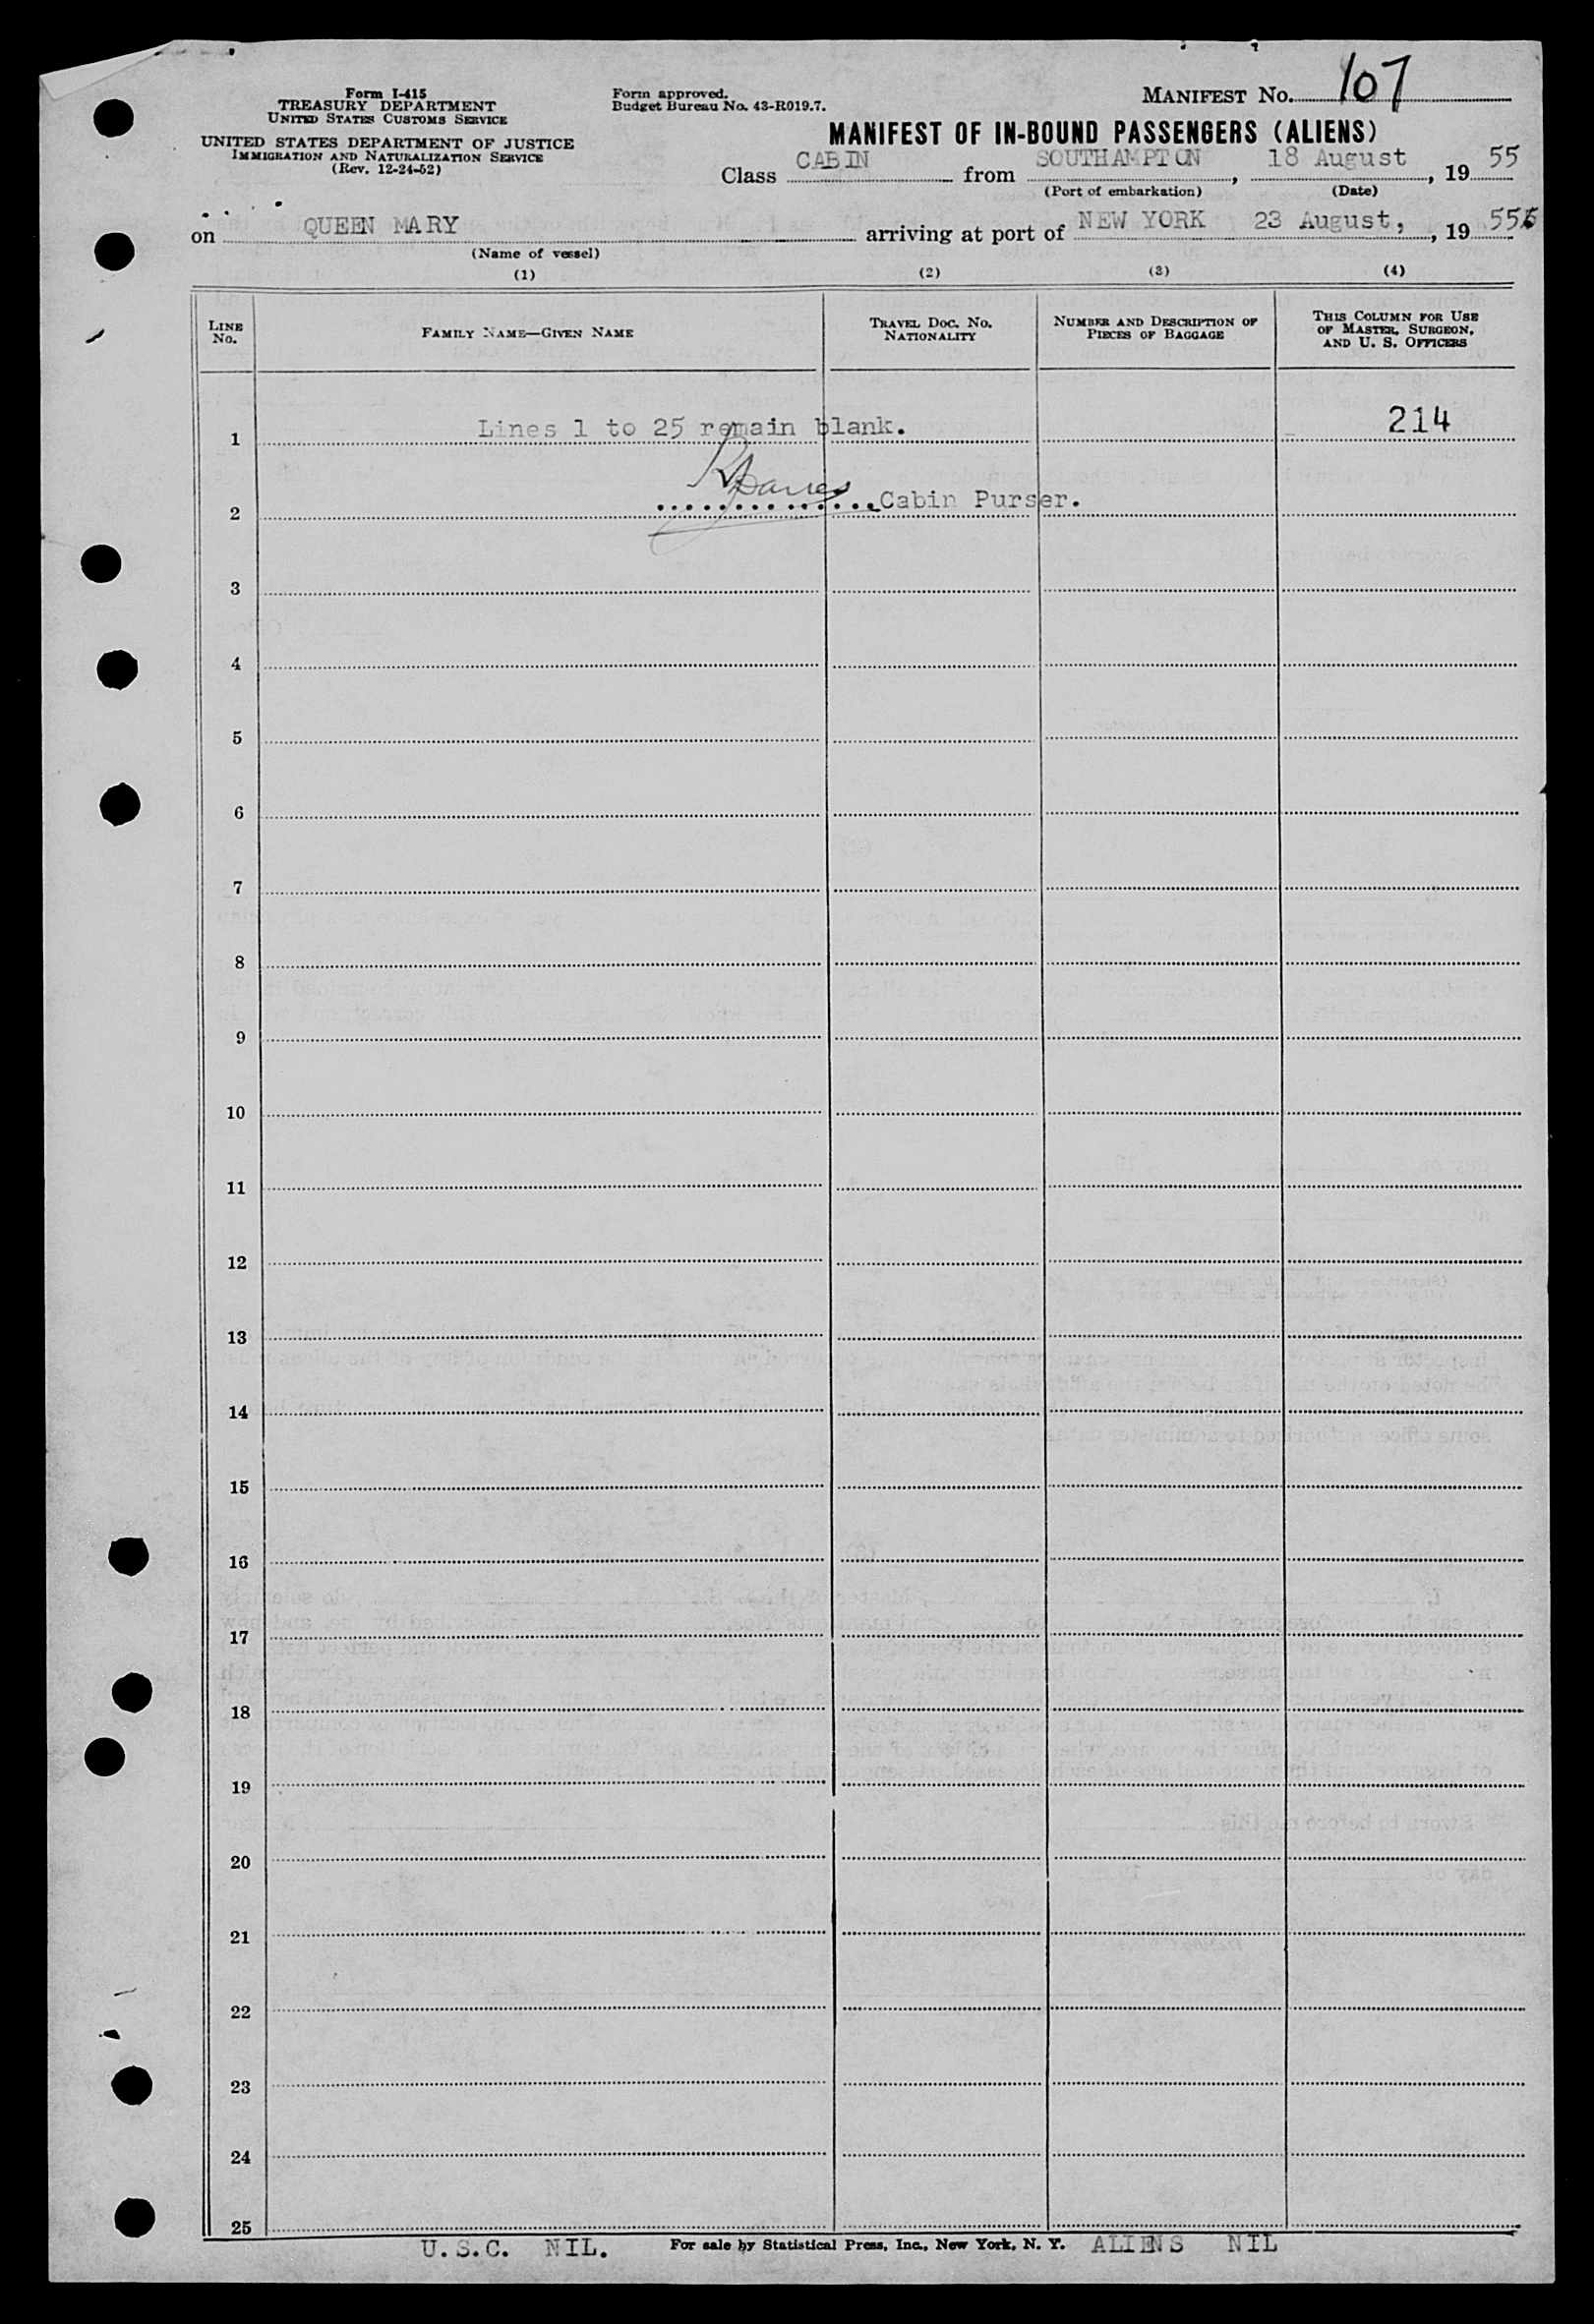 Form I-415
TREASURY DEPARTMENT
UNITED STATES CUSTOMS SERVICE
UNITED STATES DEPARTMENT OF JUSTICE
IMMIGRATION AND NATURALIZATION SERVICE
(Rev. 12-24-52)
Form approved.
Budget Bureau No. 43-R019.7.
MANIFEST No. 107
MANIFEST OF IN-BOUND PASSENGERS (ALIENS)
Class CABIN from SOUTHAMPTON, 18 August, 1955
(Port of embarkation) (Date)
on QUEEN MARY arriving at port of NEW YORK 23 August, , 1955
(Name of vessel)
(1) (2) (3) (4)
LINE No.
FAMILY NAME—GIVEN NAME
TRAVEL DOC. NO. NATIONALITY
NUMBER AND DESCRIPTION OF PIECES OF BAGGAGE
THIS COLUMN FOR USE OF MASTER, SURGEON, AND U. S. OFFICERS
1 Lines 1 to 25 remain blank. 214
2 Cabin Purser.
3
4
5
6
7
8
9
10
11
12
13
14
15
16
17
18
19
20
21
22
23
24
25
U.S.C. NIL. For sale by Statistical Press, Inc., New York, N. Y. ALIENS NIL